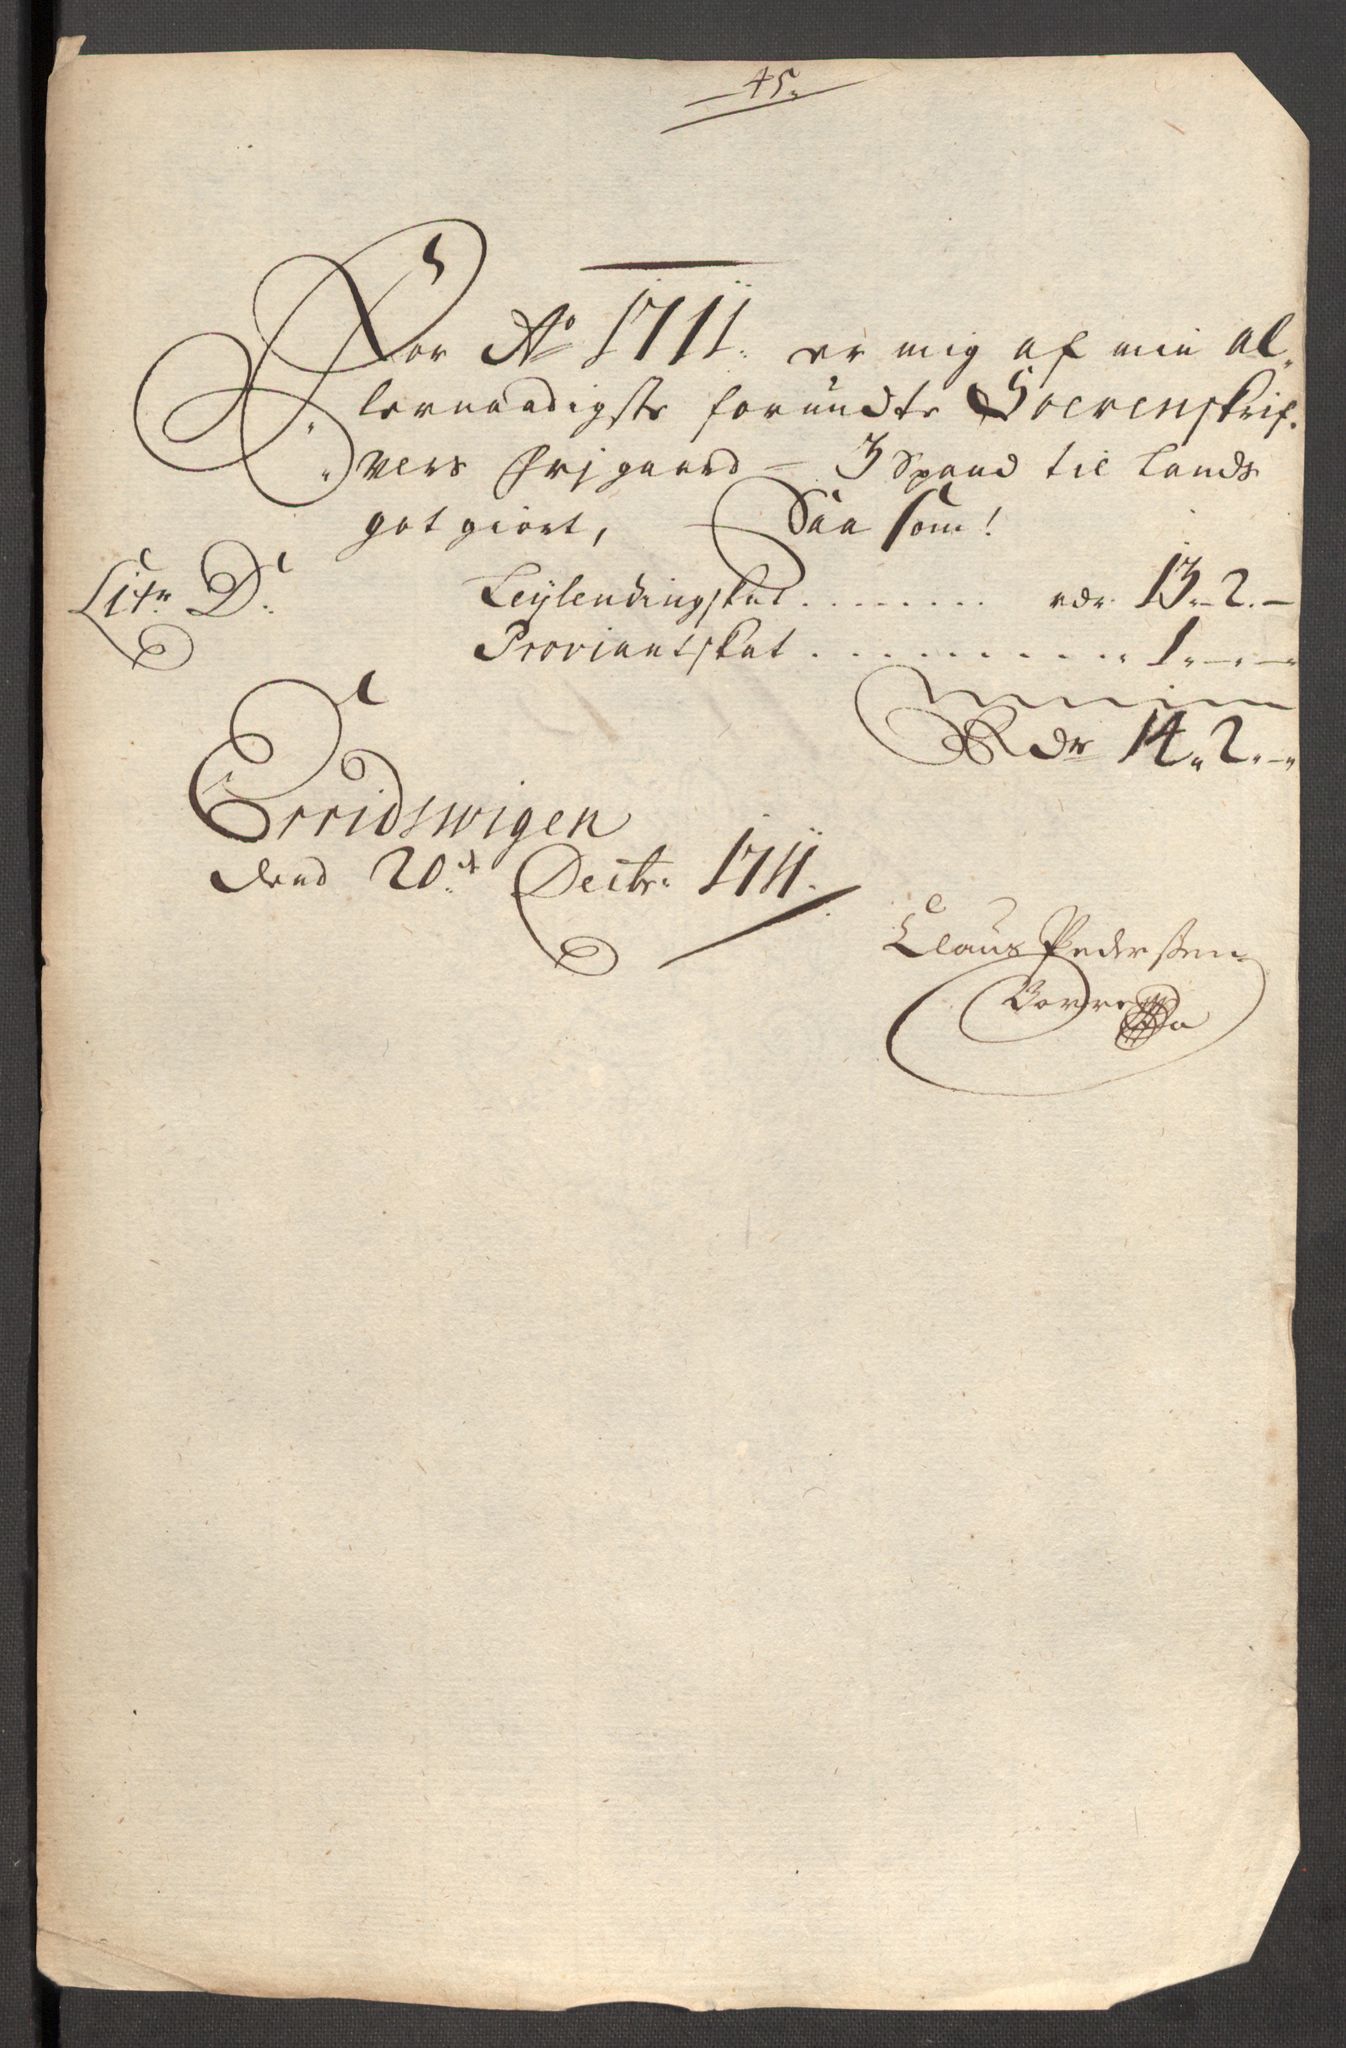 45.
For Ao 1711. er mig af min al-
lernaadigste forundte Soerenskrif-
vers frj gaard - 3 Spand til Lands
got giort, Saa Som!
Litr D. Leylendingskat ........ rdr 13.-2.-
Proviantskat ......... 1.-.-
Rdr 14.2.-
Erridswigen
dend 20de Decbr. 1711.
Claus Pederssen